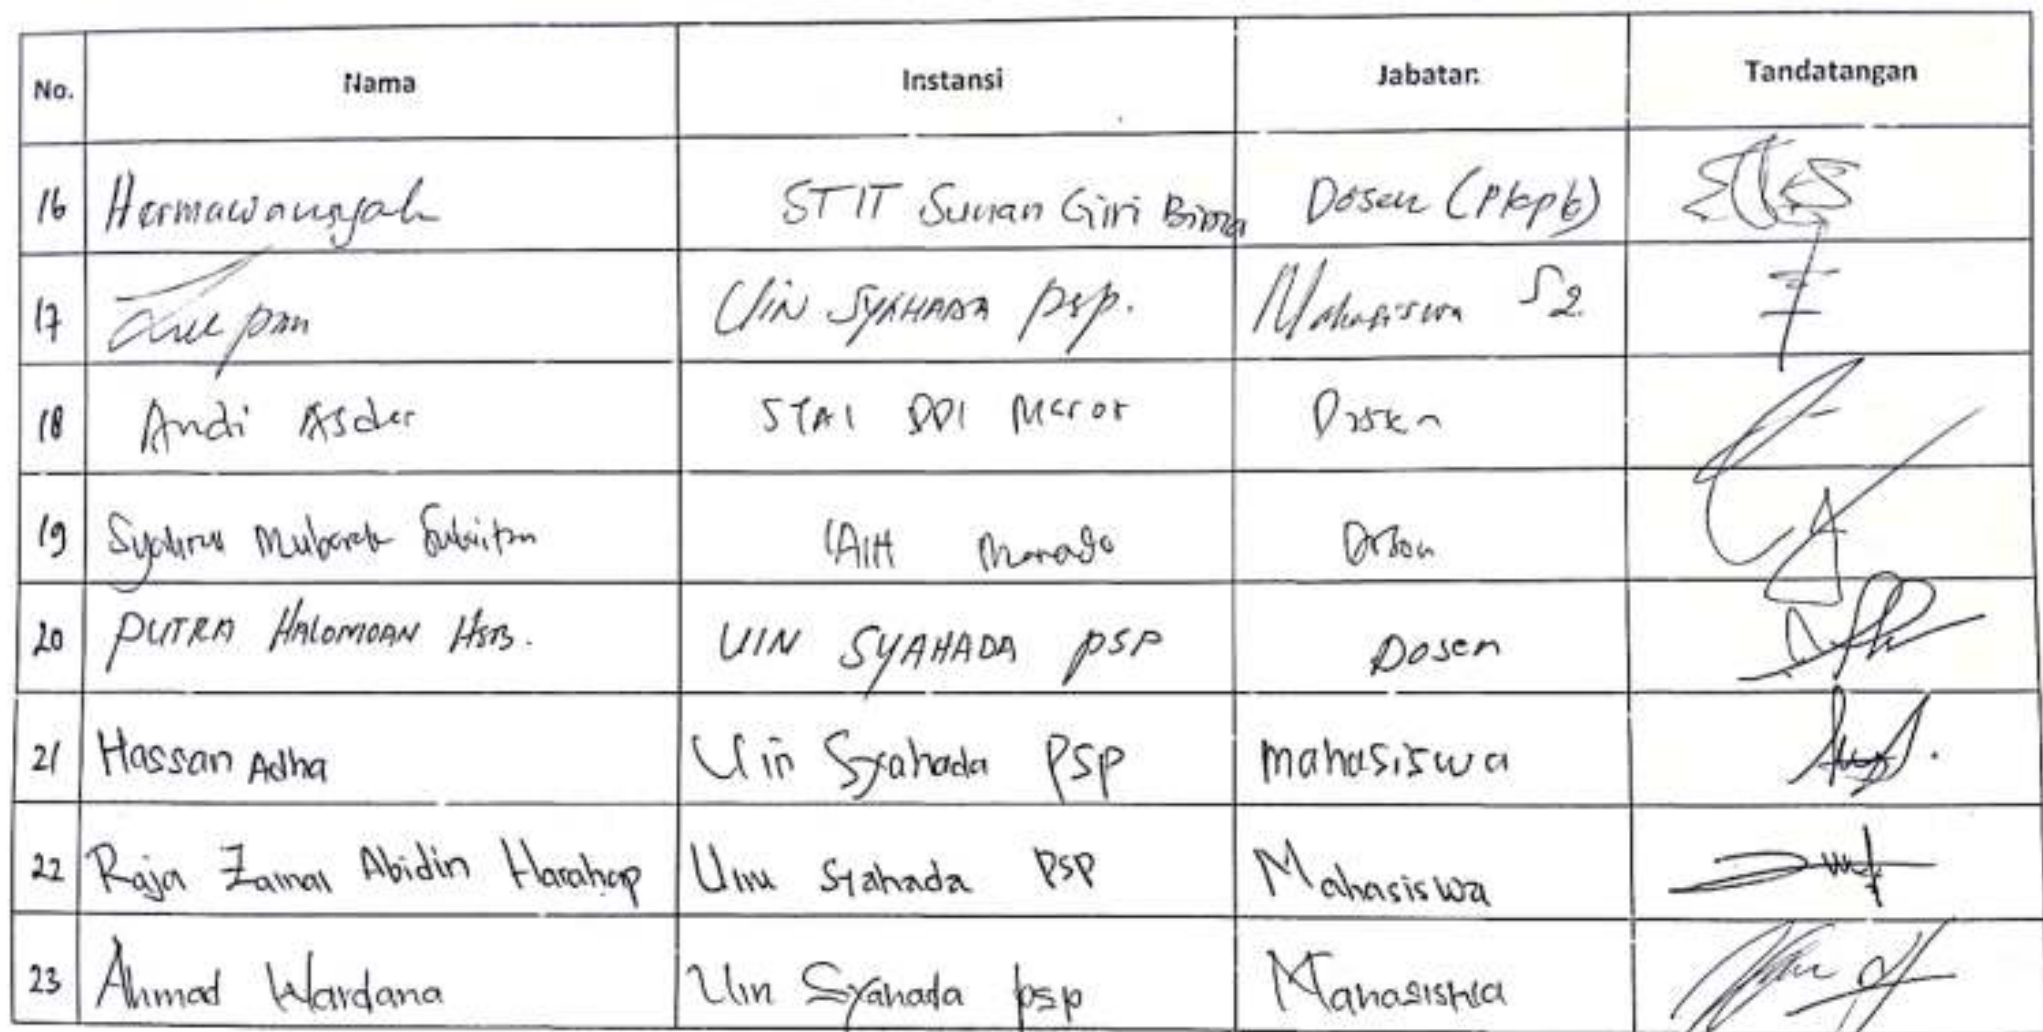 No. Nama Instansi Jabatan Tandatangan
16 Hermawansyah STIT Sunan Giri Bima Dosen (Pkpb)
17 UIN SYAHADA PSP. Mahasiswa S2
18 Andi Asdar STAI DDI Maros Dosen
19 Syahrul Mubarak IAIN Manado Dosen
20 PUTRA HALOMOAN HSB. UIN SYAHADA PSP Dosen
21 Hassan Adha Uin Syahada PSP mahasiswa
22 Raja Zainal Abidin Harahap Uin Syahada PSP Mahasiswa
23 Ahmad Wardana Uin Syahada psp Mahasiswa